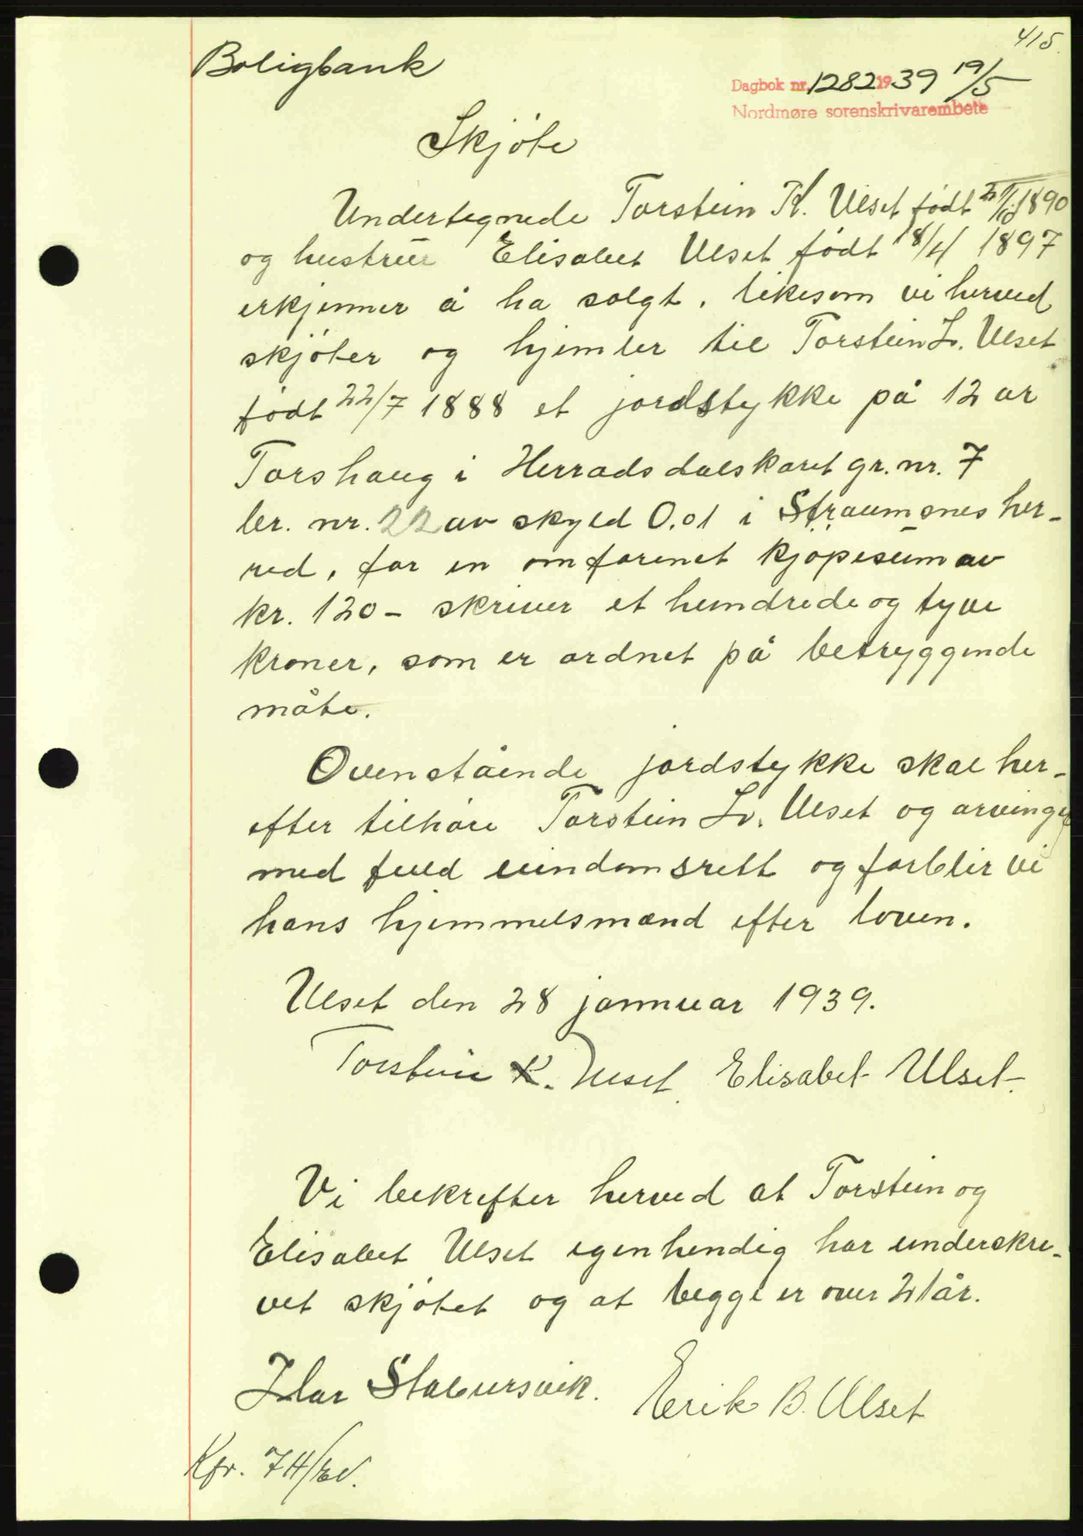 415.
Boligbank
Dagbok nr. 1282 1939 19/5
Nordmøre sorenskrivarembete
Skjöte
Undertegnede Torstein K. Ulset født 1890
og hustru Elisabet Ulset født 18/4 1897
erkjenner å ha solgt, likesom vi herved
skjöter og hjemler til Torstein L. Ulset
født 22/7 1888 et jordstykke på 12 ar
Torshaug i Herradsdalskaret gr. nr. 7
br. nr. 22 av skyld 0,01 i Straumsnes her-
red, for en omforenet kjöpesum av
kr. 120- skriver et hundrede og tyve
kroner, som er ordnet på betryggende
måte.
Ovenstående jordstykke skal her-
efter tilhöre Torstein Lv. Ulset og arvinger
med fuld eiendomsrett og forblir vi
hans hjemmelsmænd efter loven.
Ulset den 28 jannuar 1939.
Torstein K. Ulset. Elisabet Ulset.
Vi bekrefter herved at Torstein og
Elisabet Ulset egenhendig har underskre-
vet skjötet og at begge er over 21 år.
Stabursvik. Erik B. Ulset
Kfr. 74/